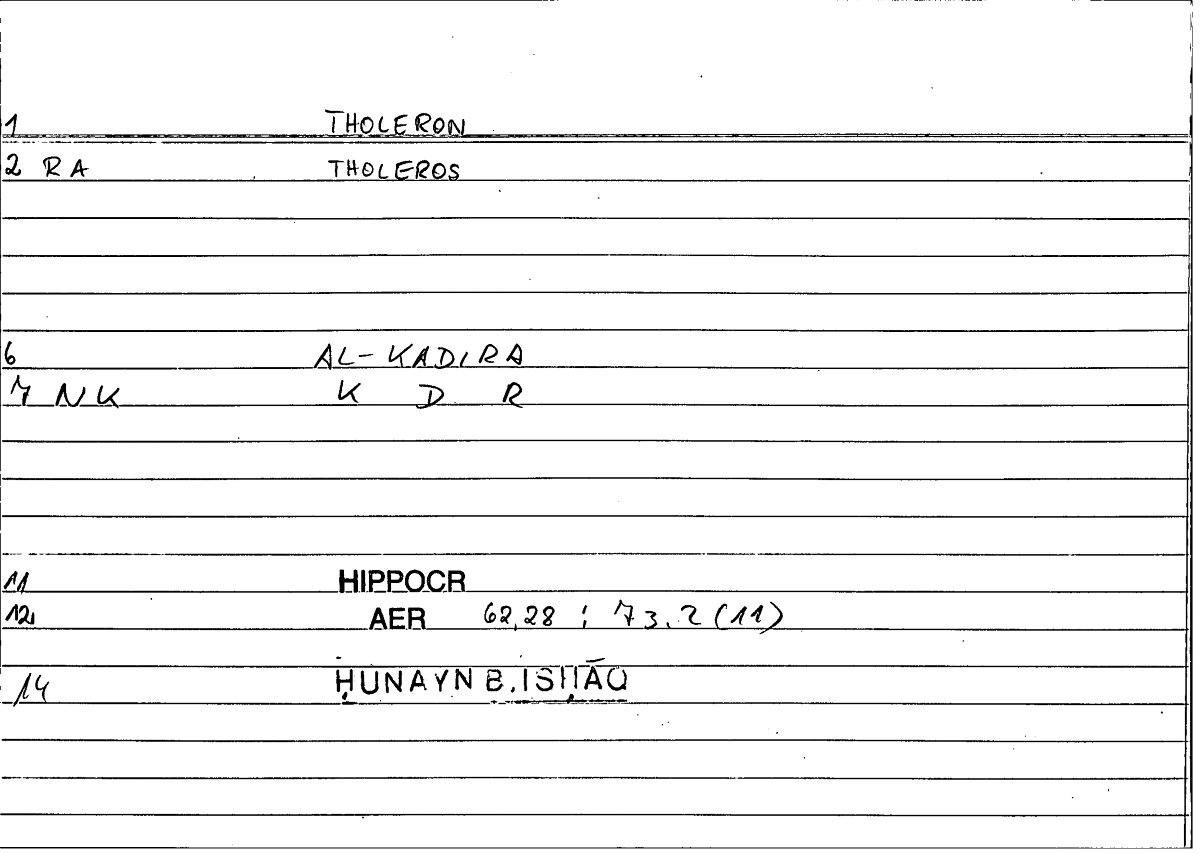 1 THOLERON
2 RA THOLEROS
6 AL-KADIRA
7 NK K D R
11 HIPPOCR
12 AER 62,28 ; 73.2 (11)
14 ḤUNAYN B. ISḤĀQ